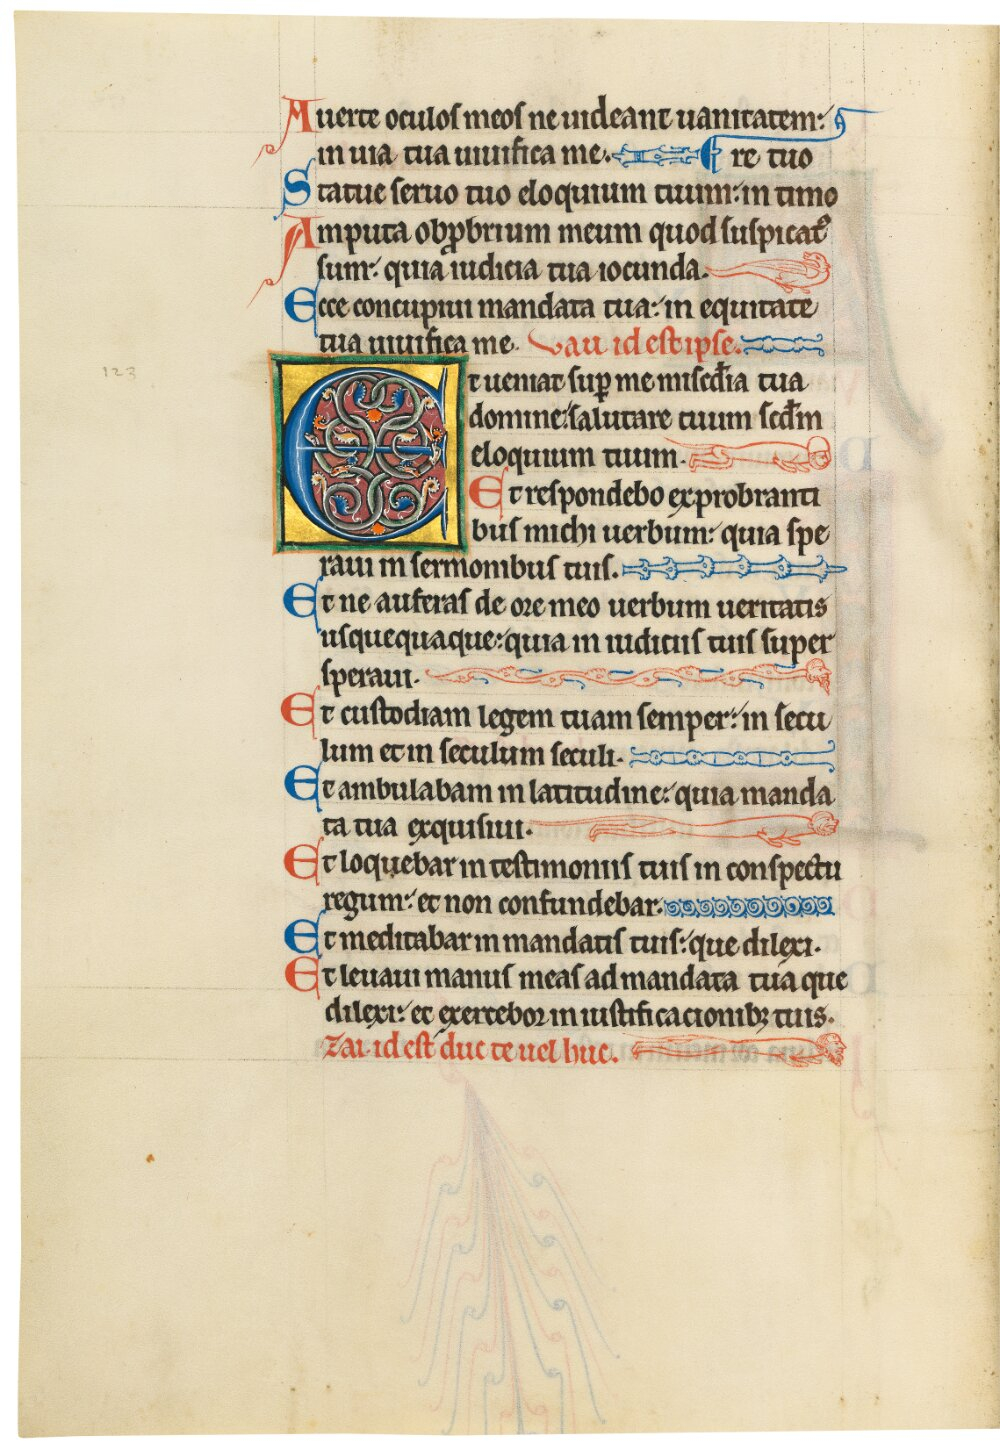 Auerte oculos meos ne uideant uanitatem:
in uia tua uiuifica me. re tuo
Statue seruo tuo eloquium tuum: in timo
Amputa obprbrium meum quod suspicat᷒
sum: quia iudicia tua iocunda.
Ecce concupiui mandata tua: in equitate
tua uiuifica me. Vau id est ipse.
123
Et ueniat sup me miscđia tua
domine: salutare tuum scđm
eloquium tuum.
Et respondebo exprobranti
bus michi uerbum: quia spe
raui in sermonibus tuis.
Et ne auferas de ore meo uerbum ueritatis
usquequaque: quia in iudiciis tuis super
speraui.
Et custodiam legem tuam semper: in secu
lum et in seculum seculi.
Et ambulabam in latitudine: quia manda
ta tua exquisiui.
Et loquebar in testimoniis tuis in conspectu
regum: et non confundebar.
Et meditabar in mandatis tuis: que dilexi.
Et leuaui manus meas ad mandata tua que
dilexi: et exercebor in iustificacionibꝫ tuis.
Zai. id est duc te uel huc.